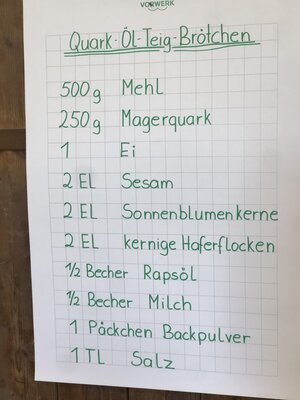 VORWERK
Quark-Öl-Teig-Brötchen
500g Mehl
250g Magerquark
1 Ei
2 EL Sesam
2 EL Sonnenblumenkerne
2 EL kernige Haferflocken
½ Becher Rapsöl
½ Becher Milch
1 Päckchen Backpulver
1 TL Salz